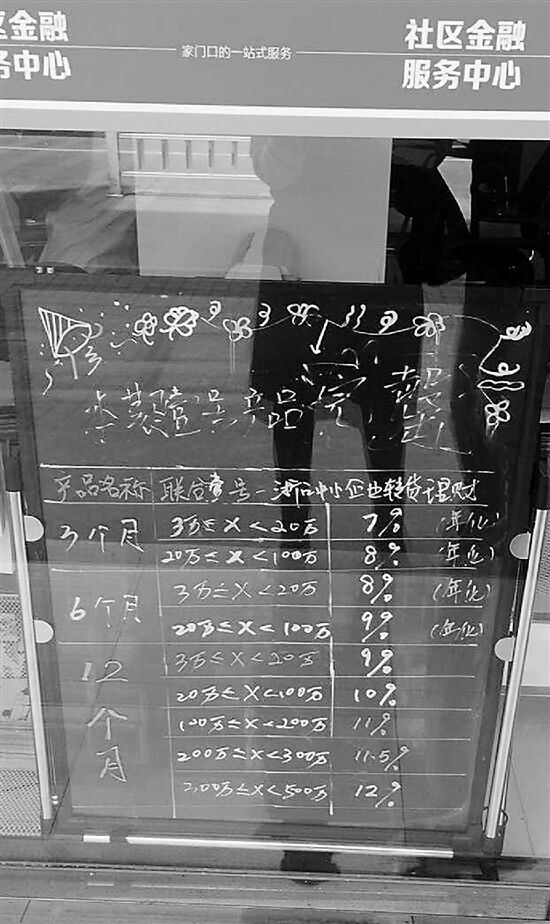 区金融
务中心
家门口的一站式服务
社区金融
服务中心
产品
产品名称 联合 一 中小企业转贷理财
3个月 3万≤X<20万 7% (年化)
20万≤X<100万 8% (年化)
6个月 3万≤X<20万 8% (年化)
20万≤X<100万 9% (年化)
12个月 3万≤X<20万 9%
20万≤X<100万 10%
100万≤X<200万 11%
200万≤X<300万 11.5%
≤X<500万 12%